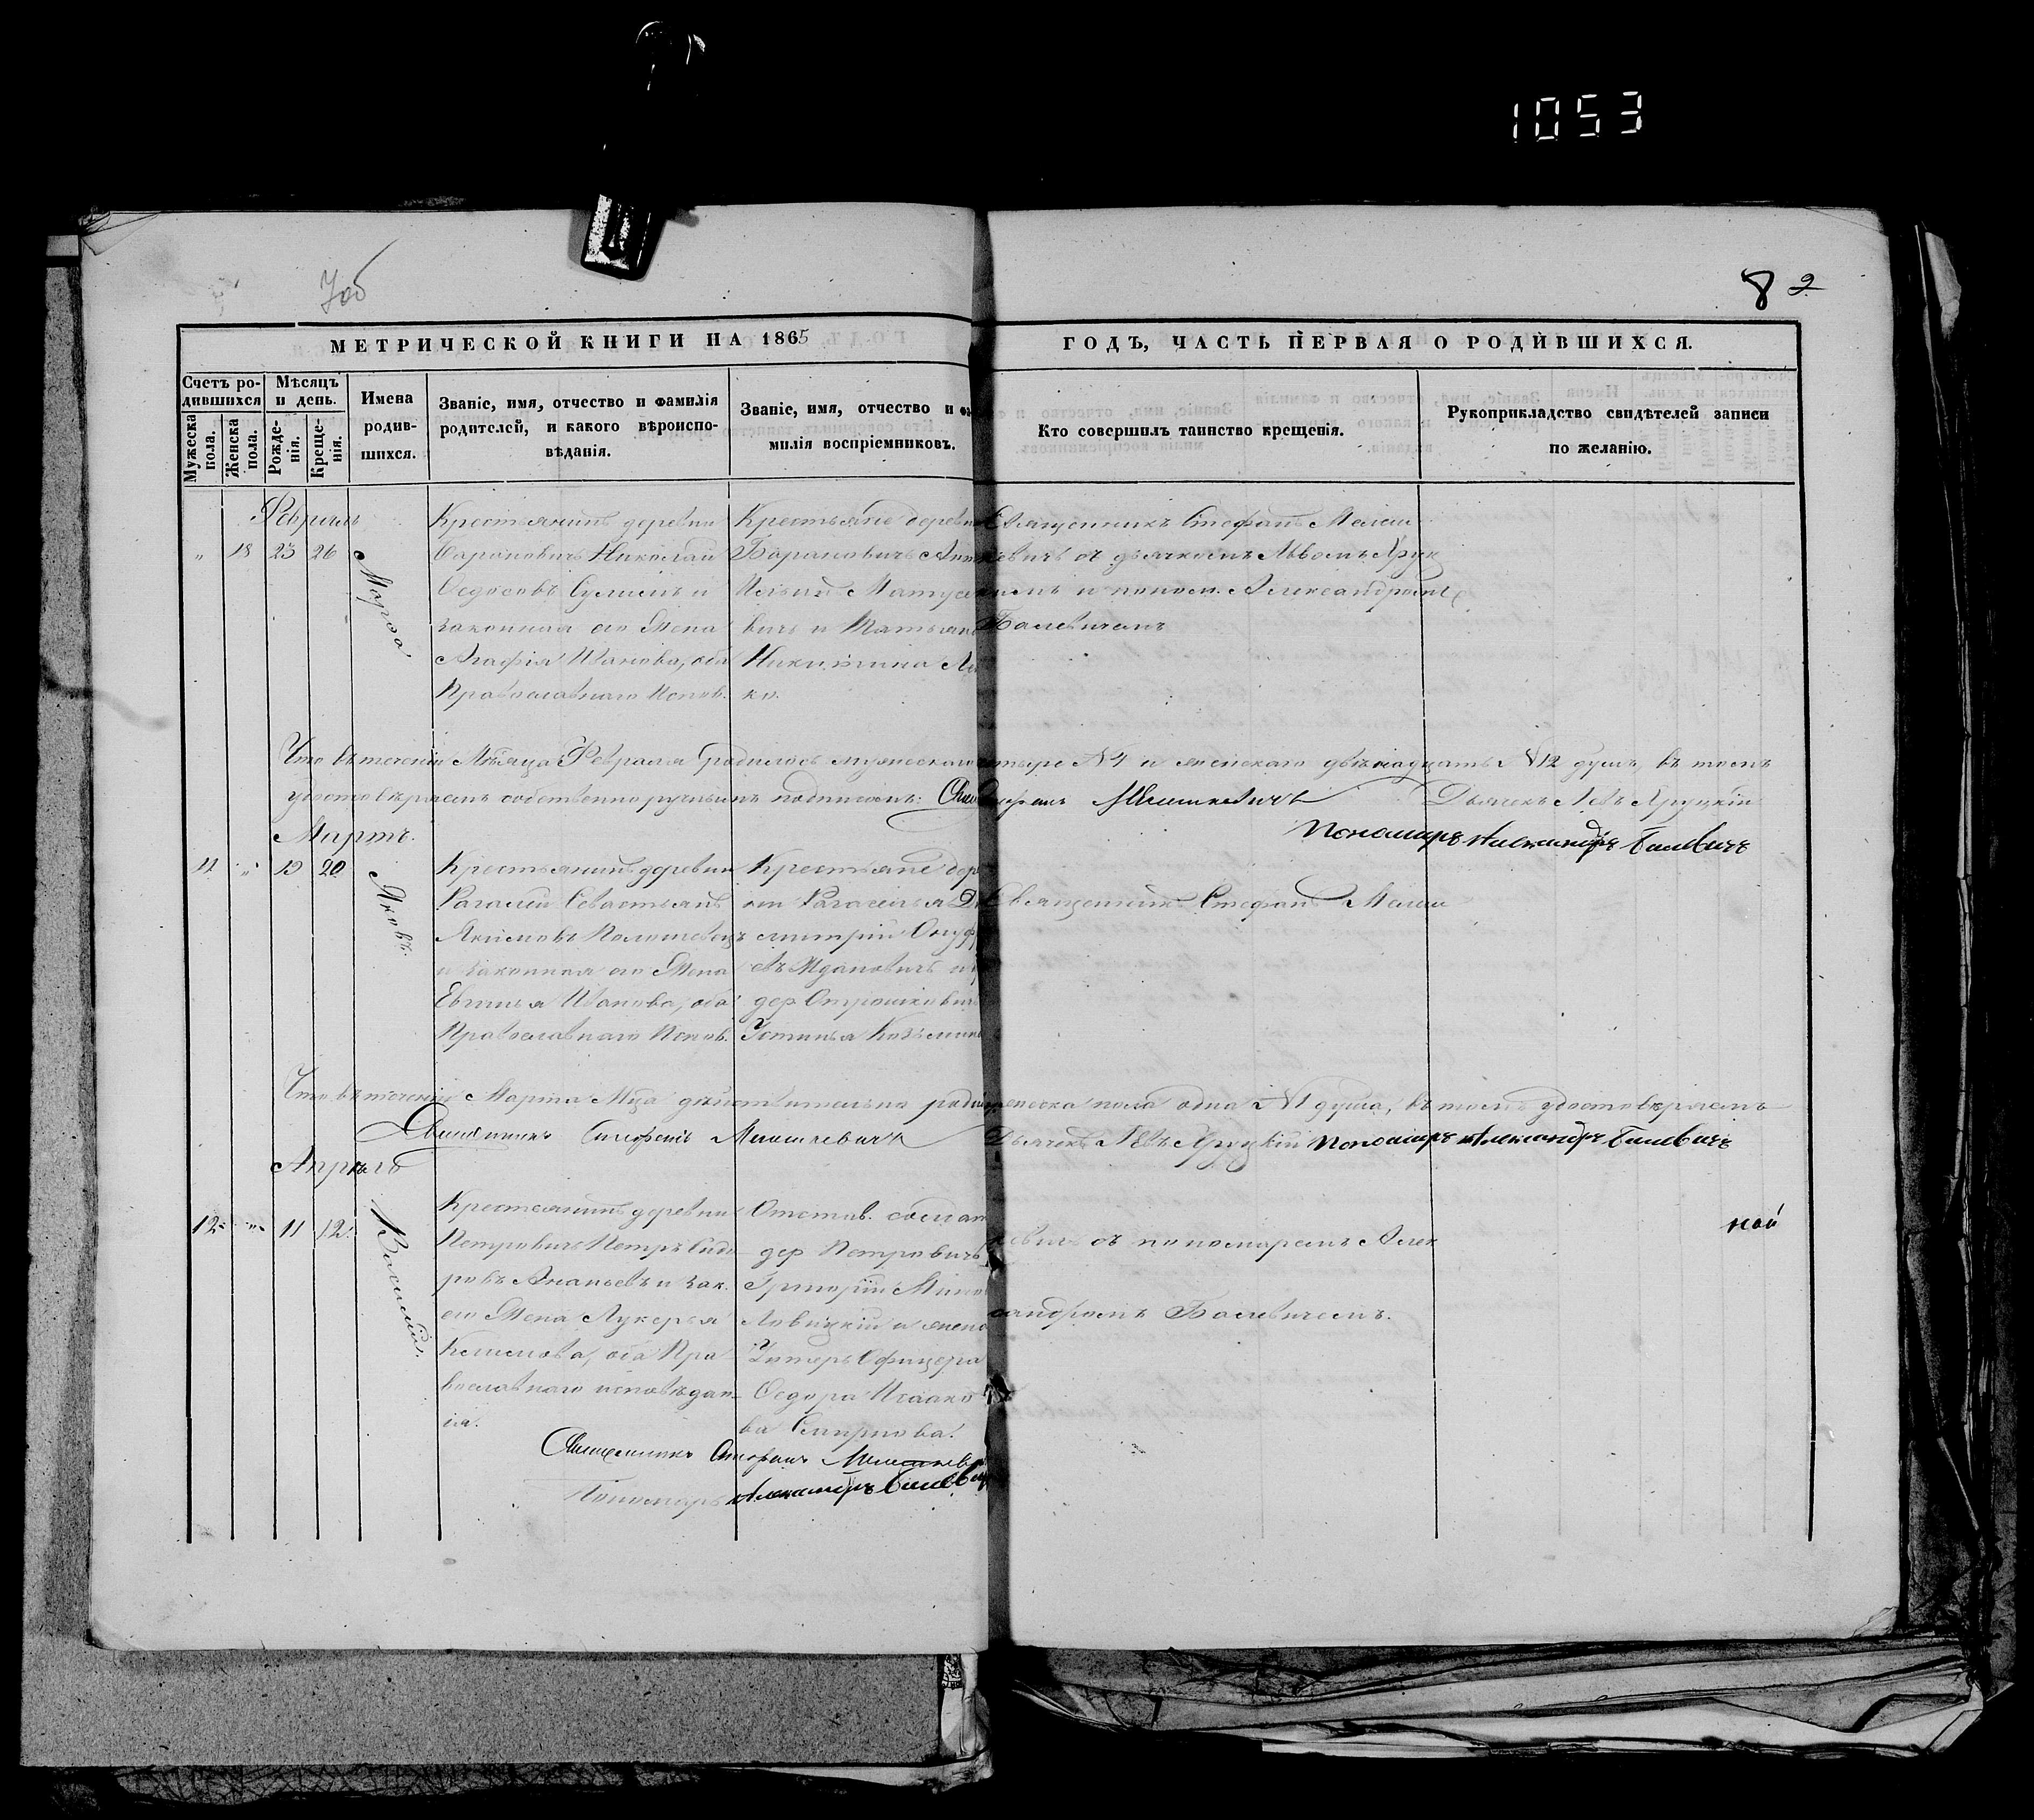 1053
7об
8 2
МЕТРИЧЕСКОЙ КНИГИ НА 1865
ГОДЪ, ЧАСТЬ ПЕРВАЯ О РОДИВШИХСЯ.
Счетъ ро-
дившихся
Мужеска
пола.
Женска
пола.
Мѣсяцъ
и день.
Рожде-
нія.
Креще-
нія.
Имена
родив-
шихся.
Званіе, имя, отчество и фамилія
родителей, и какого вѣроиспо-
вѣданія.
Званіе, имя, отчество и фа
милія воспріемниковъ.
Кто совершилъ таинство крещенія.
Рукоприкладство свидѣтелей записи
по желанію.
Февраль
„ 18 23 26
Марѳа
Крестьянинъ деревни
Бароновичъ Николай
Ѳедосовъ и
законная его жена
Агафія Иванова, оба
Православнаго Испов.
Крестьяне деревни
Барановичъ
и Татьяна
Никитина
ко.
Священникъ Стефанъ Малиш
кевичъ съ дьячкомъ Львомъ Хруц
кимъ и поном. Александромъ
Балевичемъ
Что въ теченіи Мѣсяца Февраля родилось мужескаго четыре №4 и женскаго двѣнадцать №12 душъ, въ томъ
удостовѣряемъ собственноручнымъ подписомъ: Стефанъ Малишкевичъ Дьячекъ Левъ Хруцкій
Пономарь Александръ Балевичъ
Мартъ.
11 „ 13 20
Яковъ.
Крестьянинъ деревни
Севастьянъ
Якимовъ
и законная его жена
Иванова, оба
Православнаго Испов.
Крестьяне дер
митрій Онуф
евъ Ждановичъ и
дер
Устинья
Священникъ Стефанъ Малиш
Что въ теченіи Марта Мца дѣйствительно мужеска пола одна №1 душа, въ томъ удостовѣряемъ
Священникъ Стефанъ Малишкевичъ Дьячекъ Левъ Хруцкій Пономарь Александръ Балевичъ
Апрѣль
12 „ 11 12
Василій.
Крестьянинъ деревни
Петровичъ Петръ Сидо
ровъ Ананьевъ и зак.
его жена Лукерья
Климова, оба Пра
вославнаго исповѣдан
ія.
Отстав. солдат
дер Петровичъ
Григорій
ловицкій и жена
Унтеръ Офицера
Ѳедора Исаако
ва Смирнова.
кевичъ съ пономаремъ Алек
сандромъ Балевичемъ.
ной
Священникъ Стефанъ Малишкевичъ
Пономарь Александръ Балевичъ